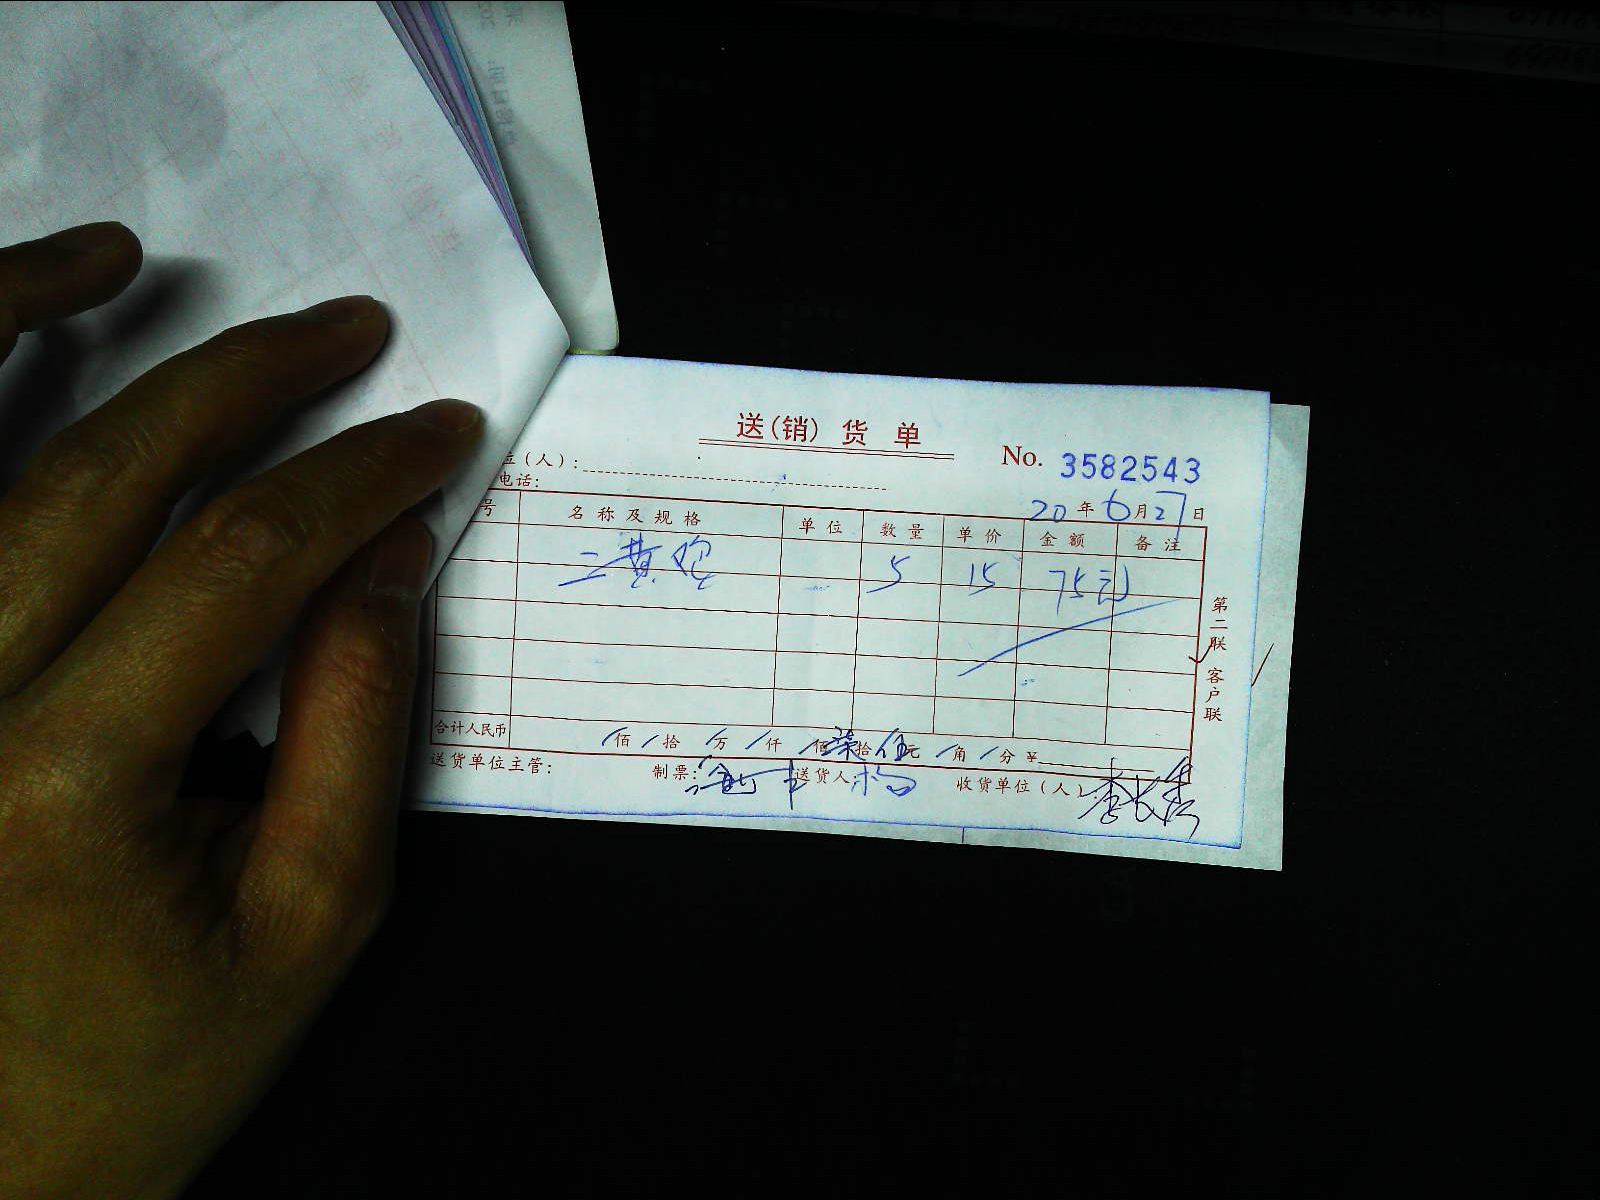 送(销) 货 单
No. 3582543
位(人):
电话:
20 年 6 月 27 日
号 名称及规格 单位 数量 单价 金额 备注
二黄炮 5 15 75元
合计人民币 / 佰 / 拾 / 万 / 仟 / 佰 柒 拾 伍 元 / 角 / 分 ¥
送货单位主管: 制票: 送货人: 杨 收货单位(人):
第二联 客户联